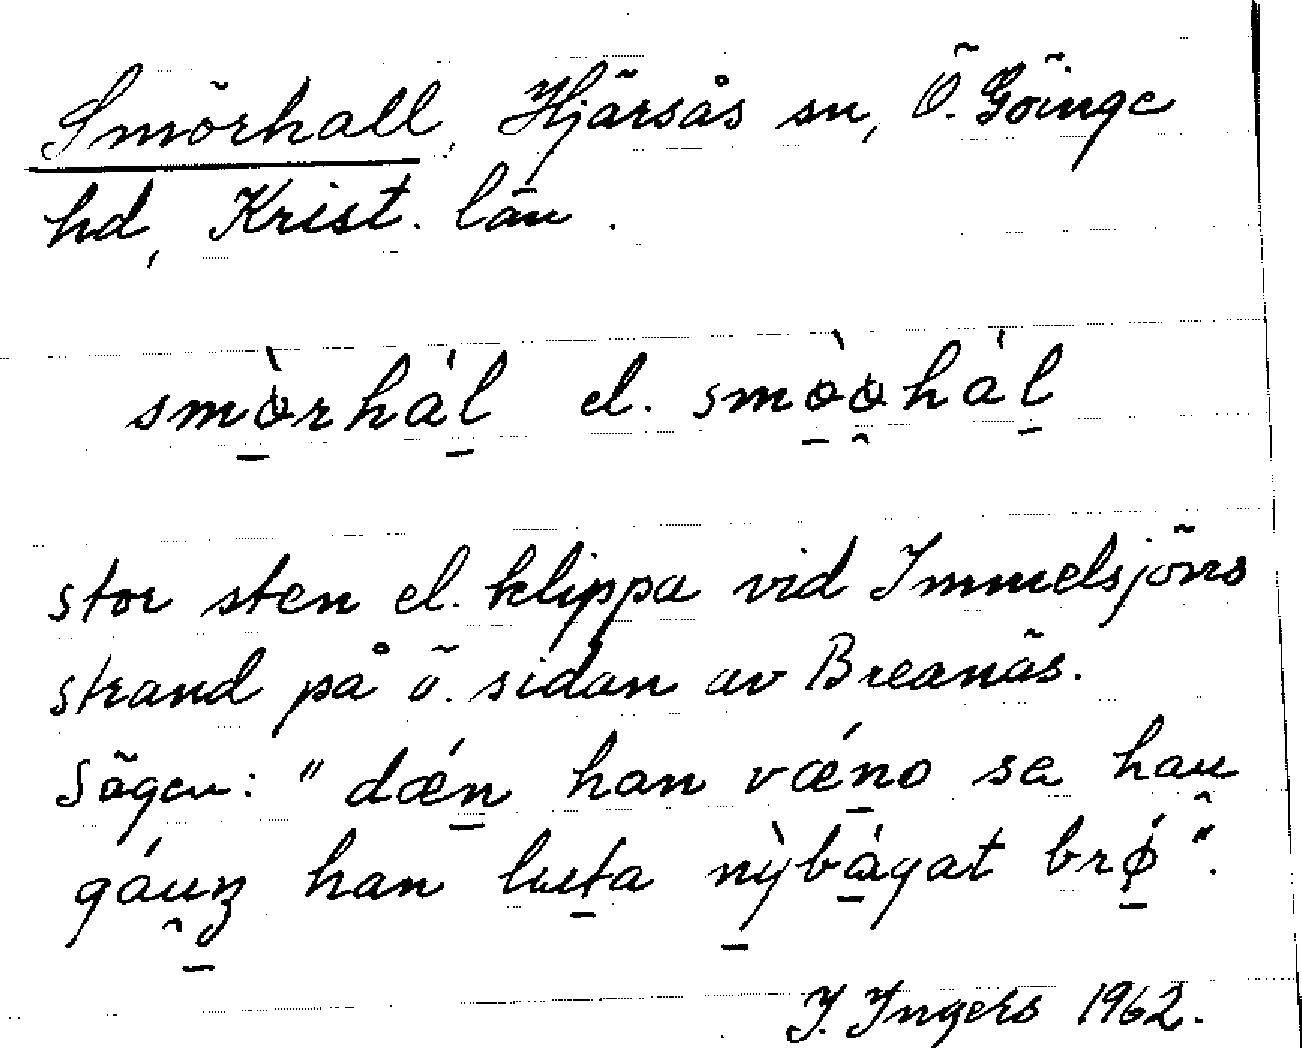 Smörhall, Hjärsås sn, Ö. Göinge
hd, Krist. län.
smòrhàl el. smòòhàl
stor sten el. klippa vid Immelsjöns
strand på ö. sidan av Breanäs.
Sägen: "dǽn han vǽno sa hau
gáuŋ han luta nỳbàgat brǿ".
I. Ingers 1962.